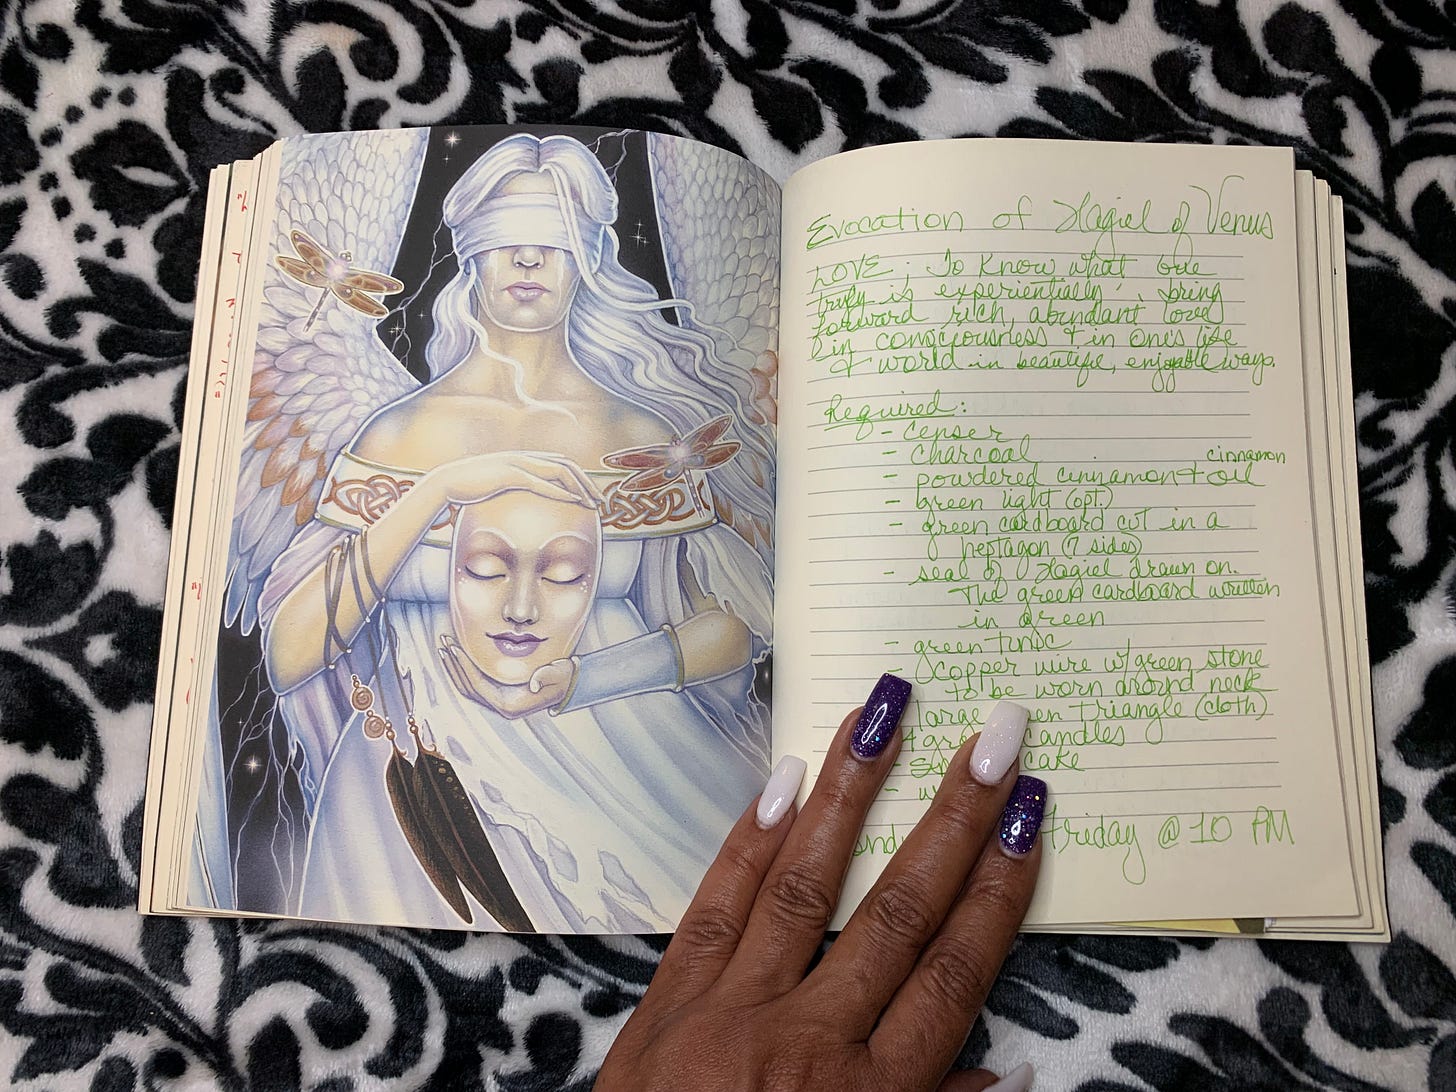 Evocation of Hagiel of Venus
LOVE; To know what one
truly is 'experientially', bring
forward rich, abundant love
in consciousness & in one's life
& world in beautiful, enjoyable ways.
Required:
- censer
- charcoal
cinnamon
- powdered cinnamon + oil
- green light (opt.)
- green cardboard cut in a
heptagon (7 sides)
- seal of Hagiel drawn on.
The green cardboard written
in green
- green tunic
- copper wire w/green stone
to be worn around neck
large triangle (cloth)
candles
cake
Friday @ 10 PM